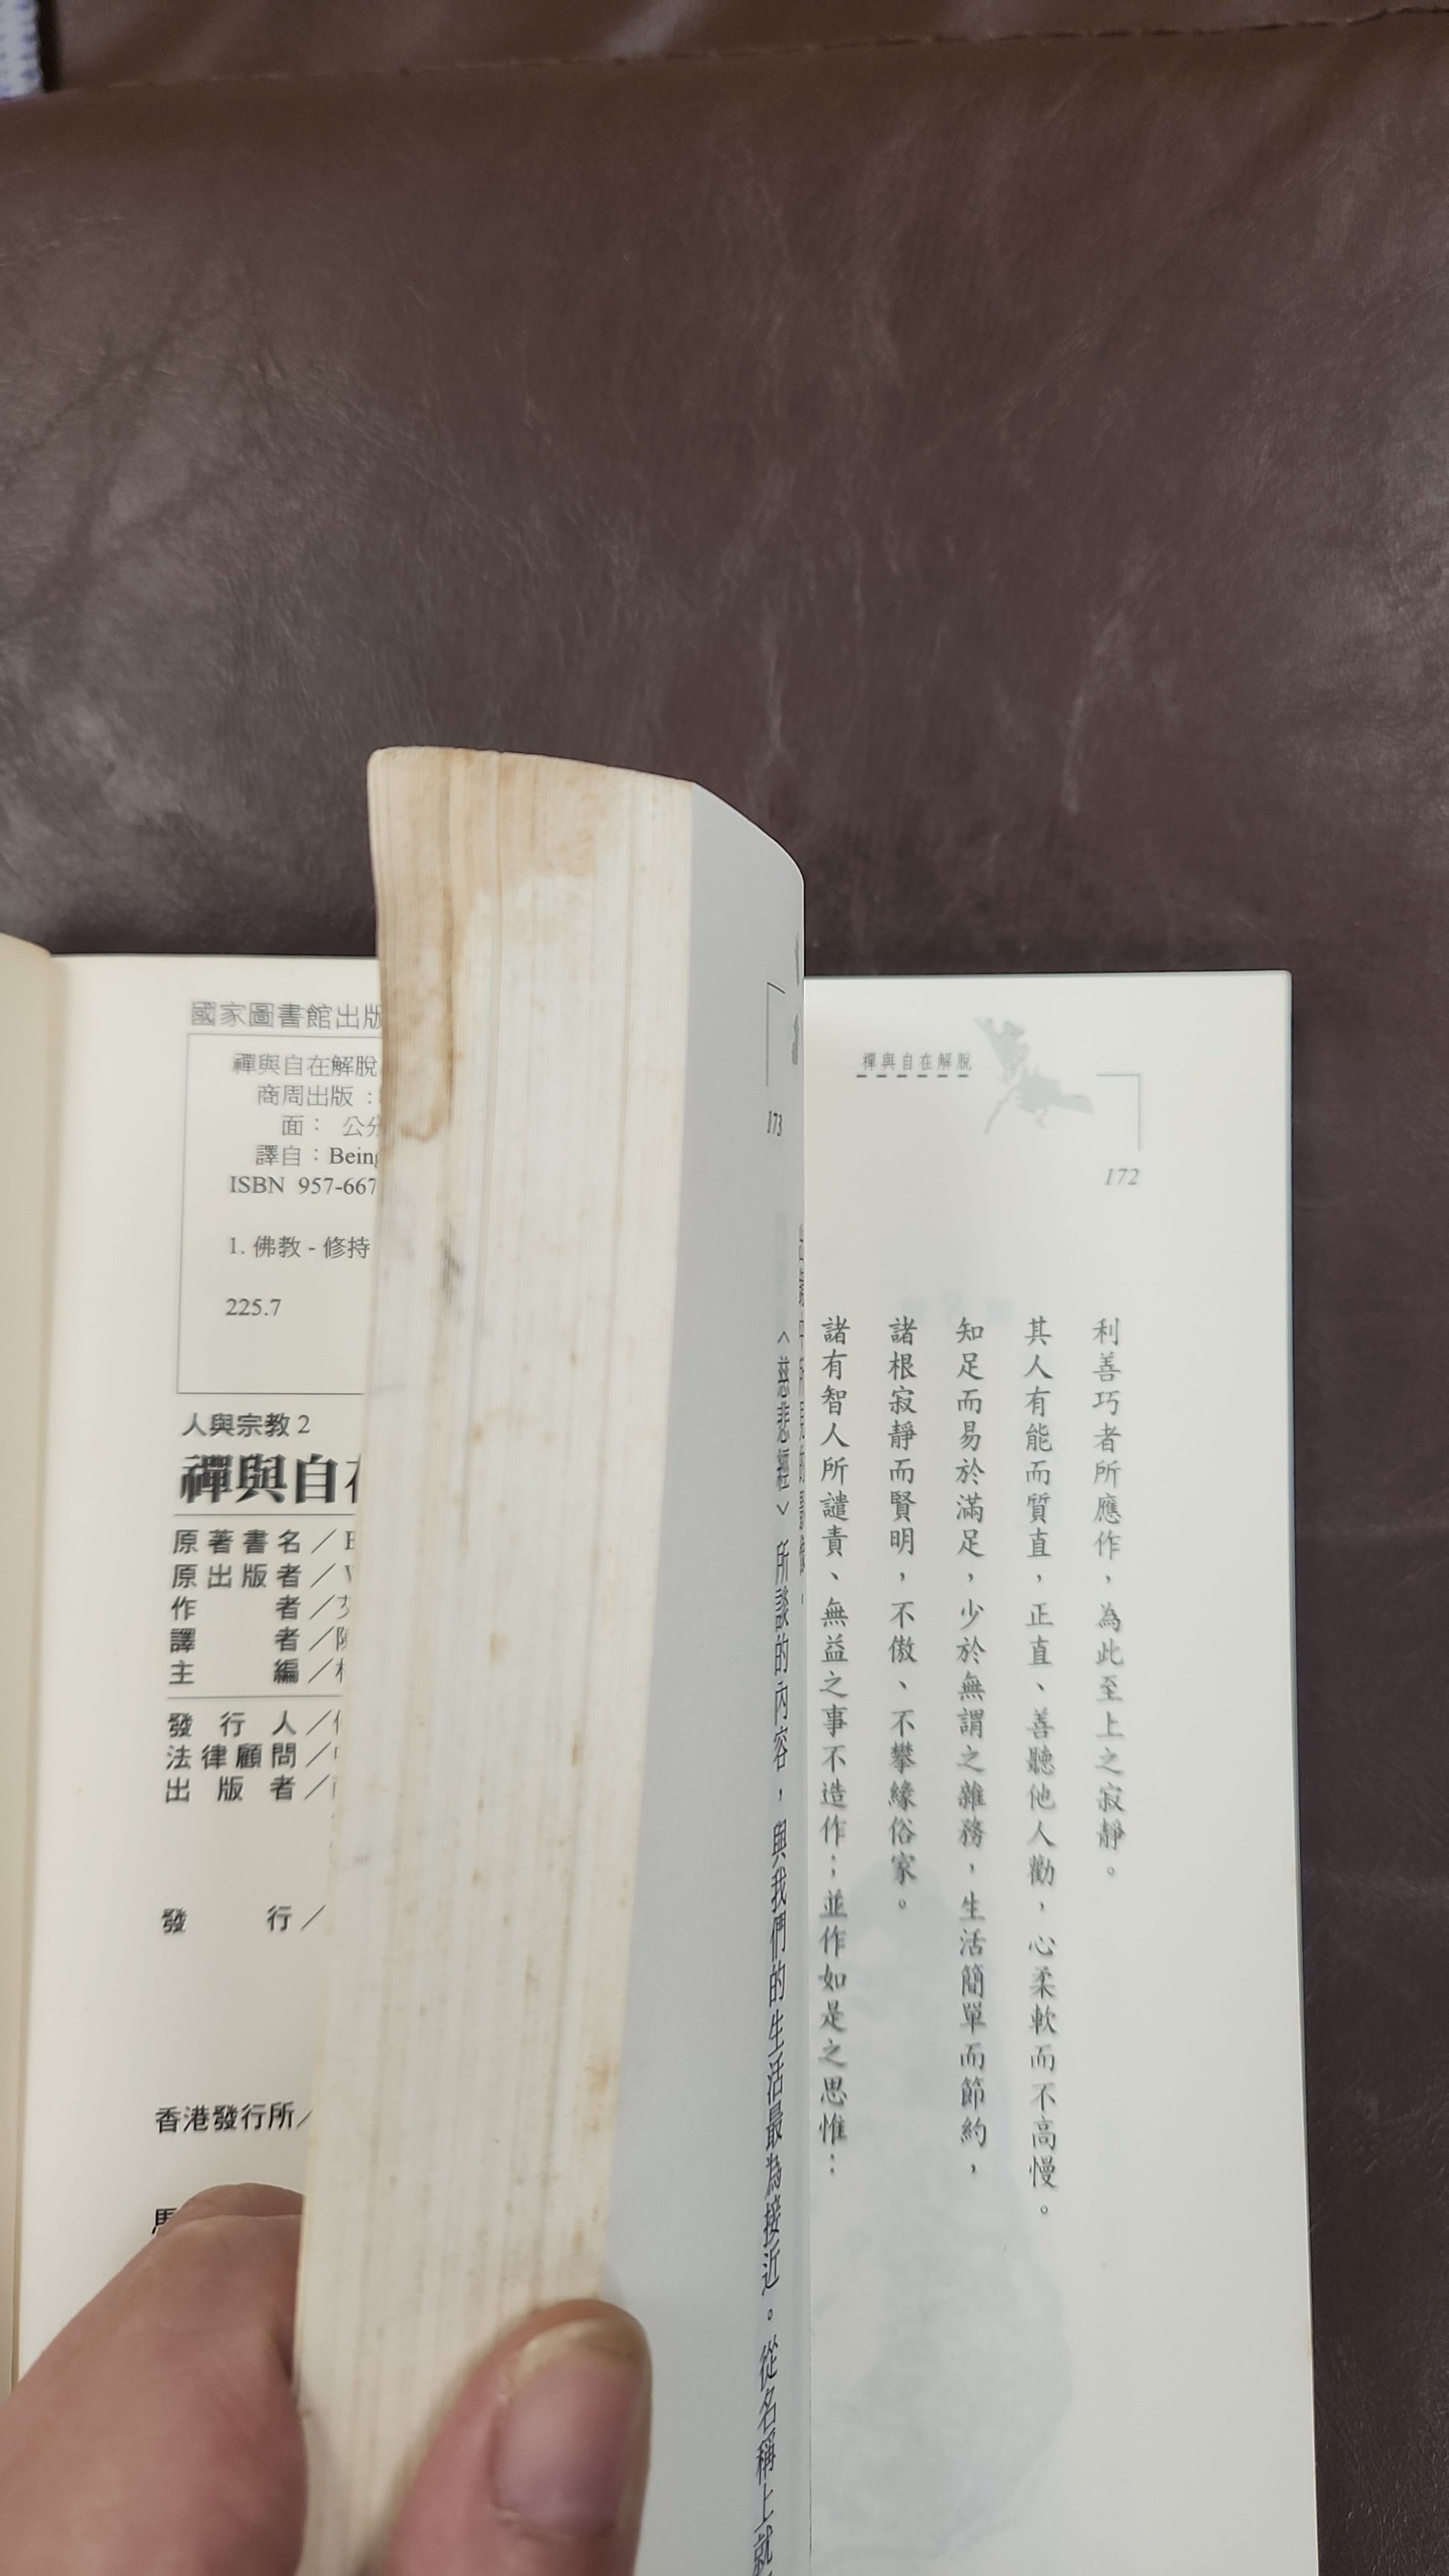 禪與自在解脫
172
利善巧者所應作，為此至上之寂靜。
其人有能而質直，正直、善聽他人勸，心柔軟而不高慢。
知足而易於滿足，少於無謂之雜務，生活簡單而節約，
諸根寂靜而賢明，不傲、不攀緣俗家。
諸有智人所譴責、無益之事不造作；並作如是之思惟：
173
〈慈悲經〉所談的內容，與我們的生活最為接近。從名稱上就
國家圖書館出版
禪與自在解脫
商周出版：
面： 公分
譯自：Being
ISBN 957-667
1. 佛教 - 修持
225.7
人與宗教 2
禪與自在
原著書名／
原出版者／
作者／
譯者／
主編／
發行人／
法律顧問／
出版者／
發行／
香港發行所／